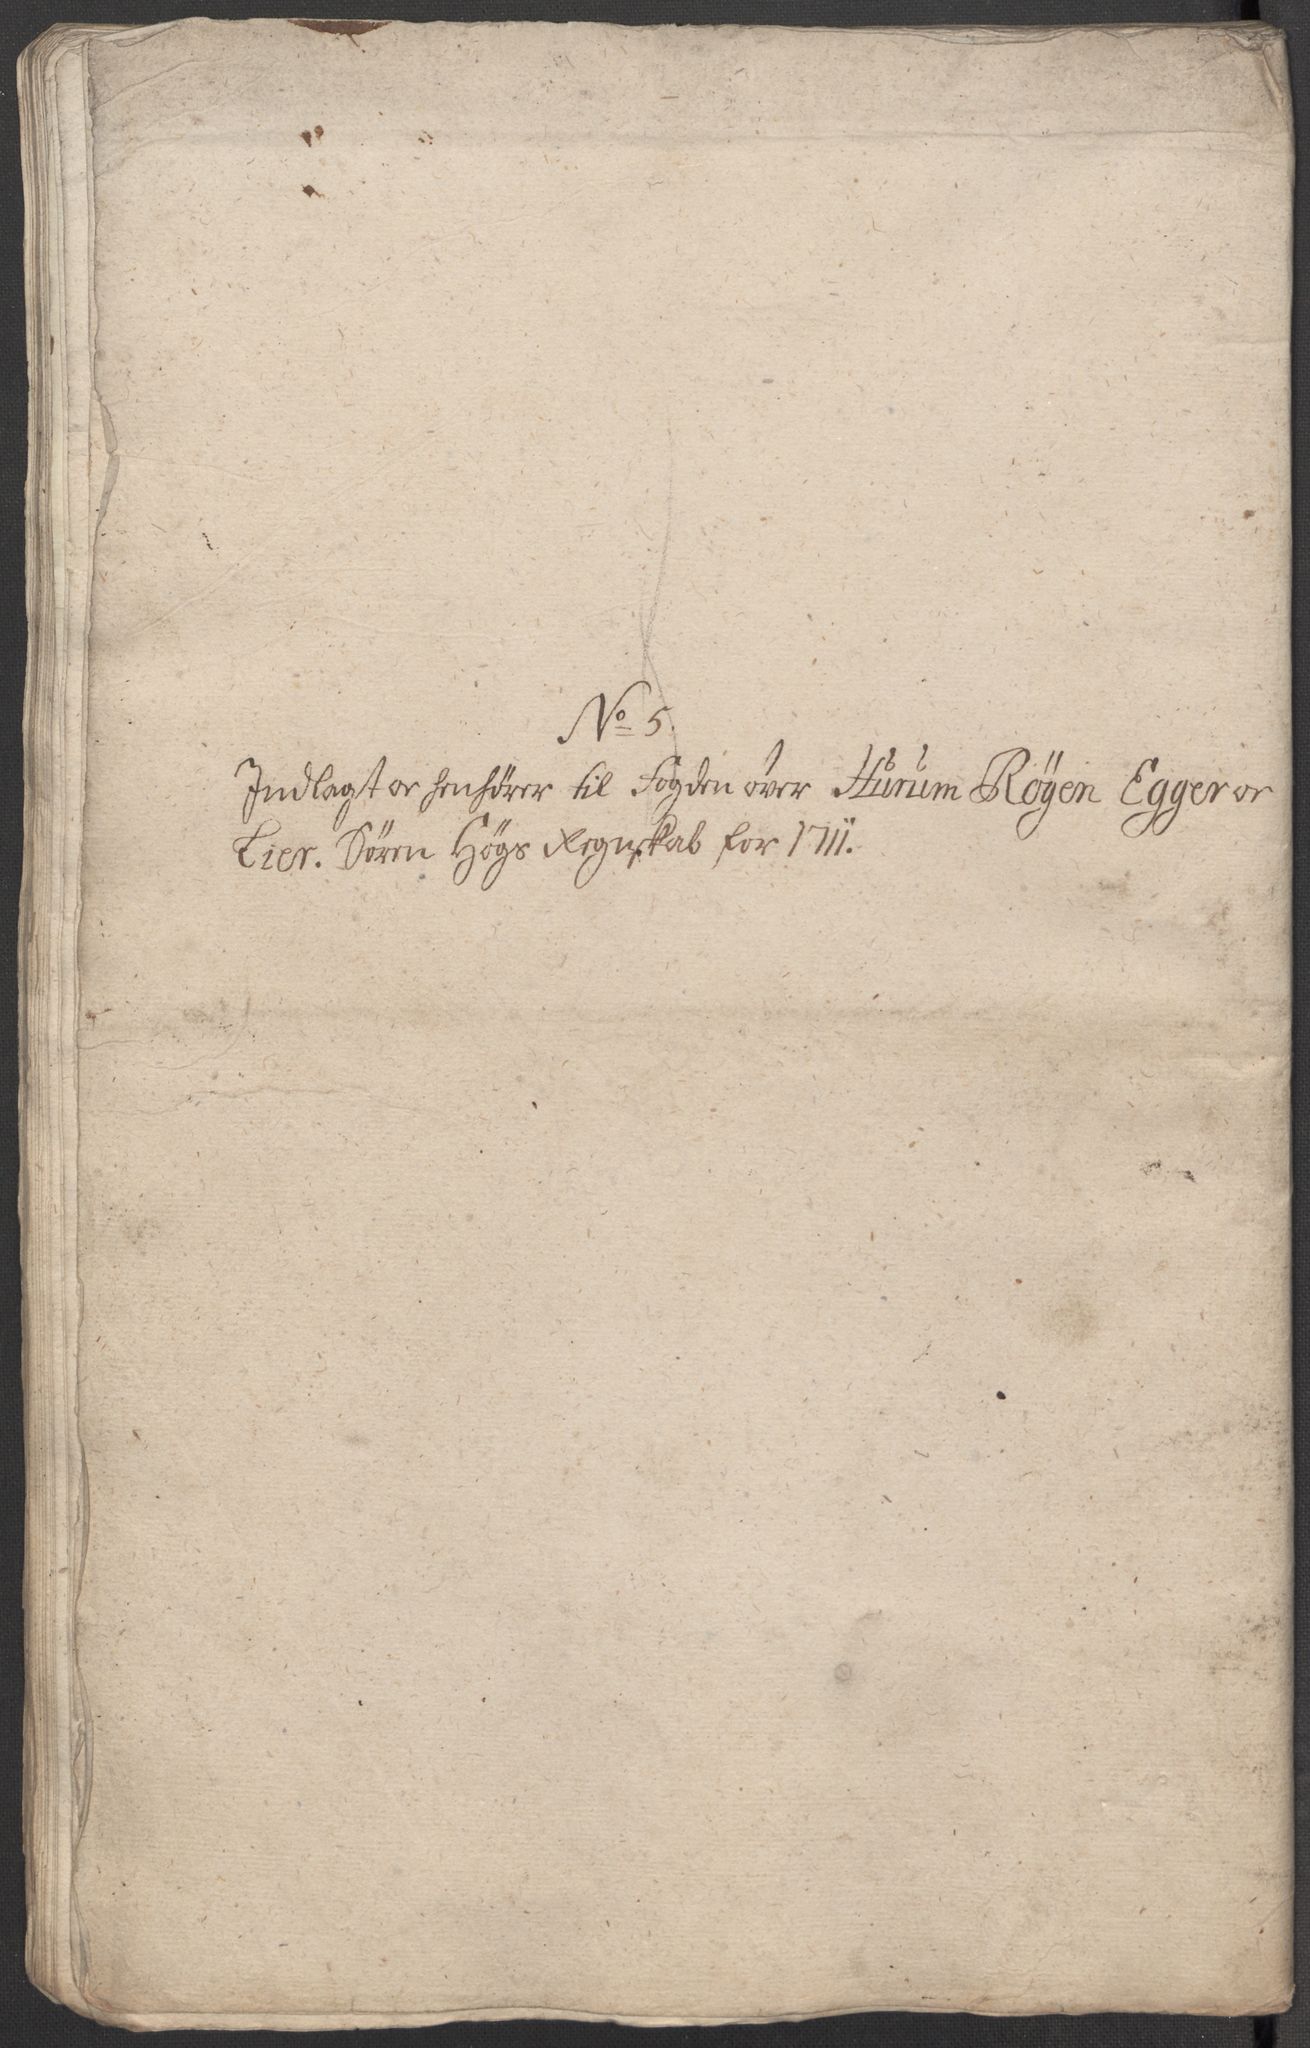 No 5.
Indlagt oc henhörer til Fogden over Hurum Røyen Egger oc
Lier. Sören Högs Regnskab for 1711.